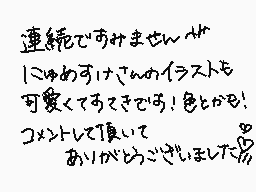 連続ですみません
にゅめすけさんのイラストも
可愛くてすてきです!色とかも!
コメントして頂いて
ありがとうございました!!!